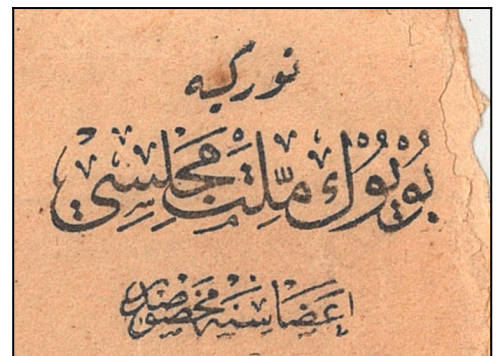 توركيه
بُويُوك مِلّت مَجلِسِي
اَعضَاسنه مخصوصدر